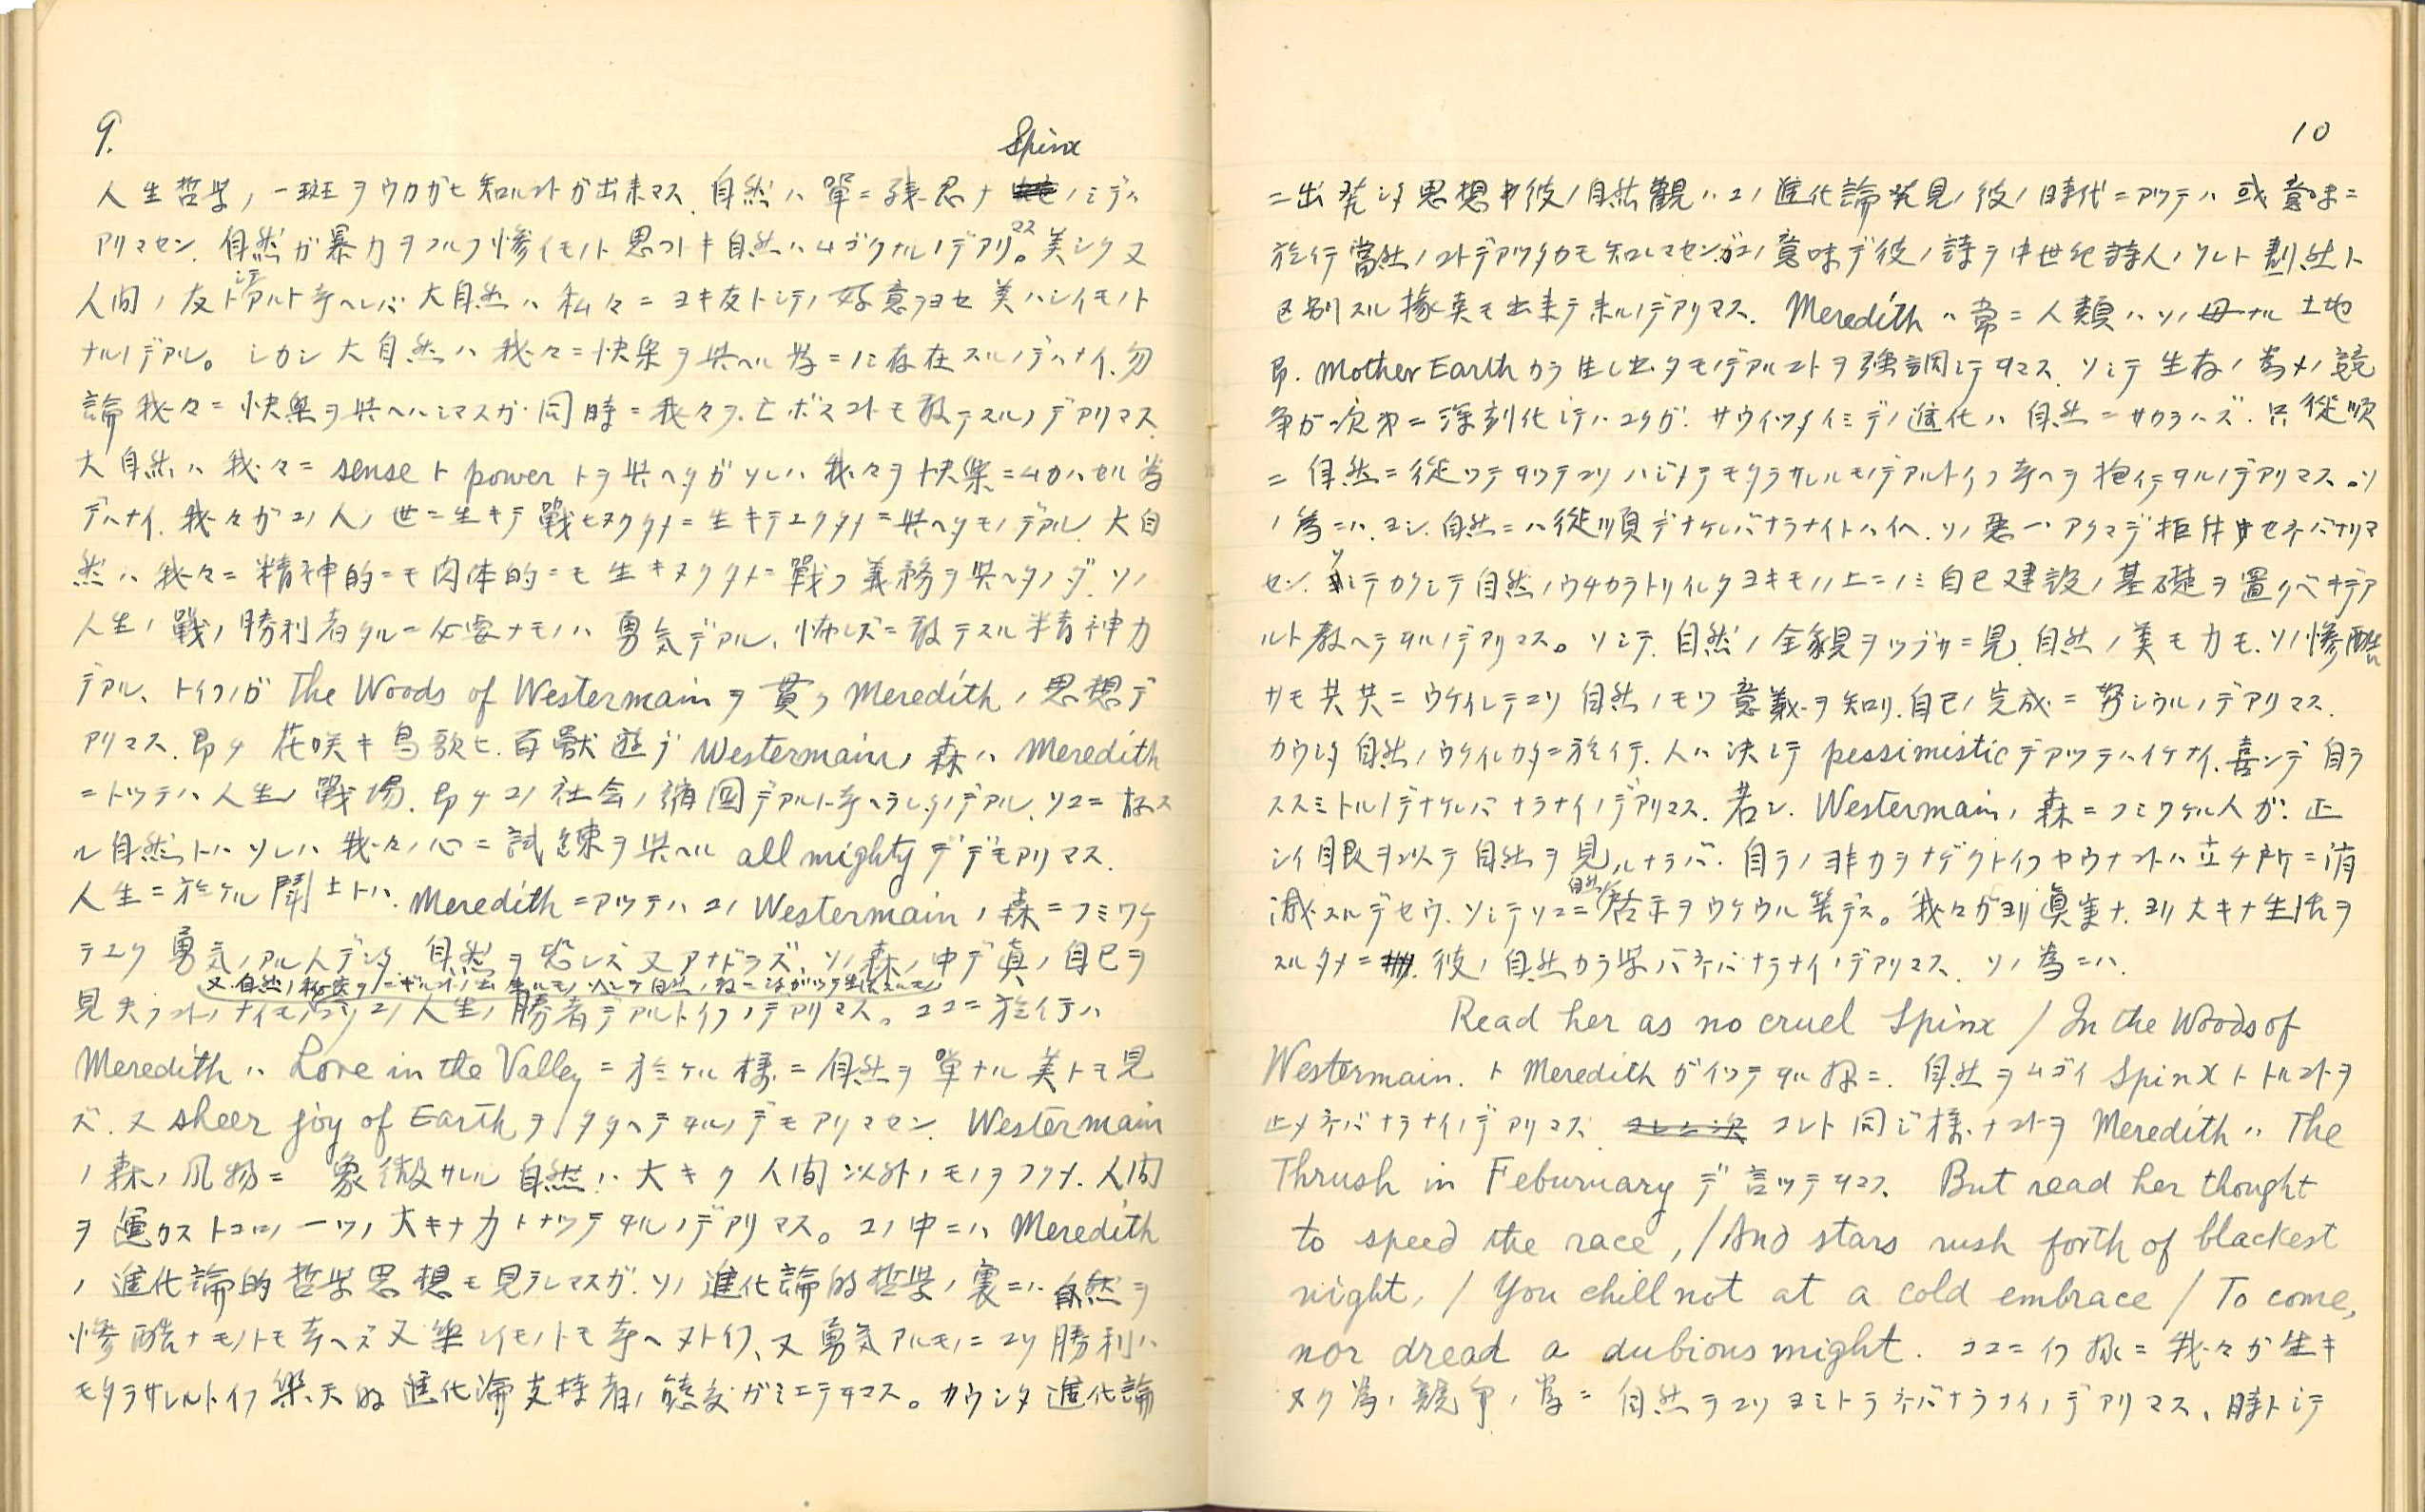 9.
Spinx
人生哲学ノ一斑ヲウカガヒ知ルコトガ出来マス. 自然ハ單ニ残忍ナ ノミデハ
アリマセン. 自然ガ暴力ヲフルフ惨イモノト思フトキ自然ハムゴクナルノデアリマス。美シク又
人間ノ友トシテアルト考ヘレバ大自然ハ私々ニヨキ友トシテノ好意ヲヨセ美ハシイモノト
ナルノデアル。シカシ大自然ハ我々ニ快樂ヲ與ヘル為ニノミ存在スルノデハナイ.勿
論我々ニ快樂ヲ與ヘハシマスガ同時ニ我々ヲ亡ボスコトモ敢テスルノデアリマス.
大自然ハ我々ニ sense ト power トヲ與ヘタガソレハ我々ヲ快樂ニムカハセル為
デハナイ. 我々ガコノ人ノ世ニ生キテ戰ヒヌクタメニ生キテユクタメニ與ヘタモノデアル. 大自
然ハ我々ニ精神的ニモ肉体的ニモ生キヌクタメニ戰フ義務ヲ與ヘタノダ. ソノ
人生ノ戰ノ勝利者タルニ必要ナモノハ勇気デアル. 怖レズニ敢テスル精神力
デアル、トイフノガ The Woods of Westermain ヲ貫ク Meredith ノ思想デ
アリマス. 即チ花咲キ鳥歌ヒ.百獸遊ブ Westermain ノ森ハ Meredith
ニトツテハ人生ノ戰場. 即チコノ社会ノ縮図デアルト考ヘラレタノデアル. ソコニ存ス
ル自然トハソレハ我々ノ心ニ試練ヲ與ヘル all mighty デデモアリマス.
人生ニ於ケル闘士トハ. Meredith ニアツテハコノ Westermain ノ森ニフミワケ
テユク勇気ノアル人デシタ. 自然ヲ恐レズ又アナドラズ. ソノ森ノ中デ真ノ自己ヲ
又.自然ノ秘密ヲ
見失フコトノナイモノコソコノ人生ノ勝者デアルトイフノデアリマス。ココニ於イテハ
Meredith ハ Love in the Valley ニ於ケル様ニ自然ヲ單ナル美トモ見
ズ. 又 sheer joy of Earth ヲタタヘテヰルノデモアリマセン. Westermain
ノ森ノ風物ニ 象徴サレル自然ハ大キク人間以外ノモノヲフクメ. 人間
ヲ運カストコロノ一ツノ大キナ力トナツテヰルノデアリマス。コノ中ニハ Meredith
ノ進化論的哲学思想モ見ラレマスガ.ソノ進化論的哲学ノ裏ニハ自然ヲ
惨酷ナモノトモ考ヘズ又樂シイモノトモ考ヘヌトイフ、又勇気アルモノニコソ勝利ハ
モタラサレルトイフ樂天的進化論支持者ノ態度ガミエテヰマス。カウシタ進化論
10
ニ出発シタ思想ヤ彼ノ自然觀ハコノ進化論発見ノ彼ノ時代ニアツテハ或意味ニ
於イテ當然ノコトデアツタカモ知レマセンガコノ意味デ彼ノ詩ヲ中世紀詩人ノソレト劃然ト
区別スル據點モ出来テ来ルノデアリマス. Meredith ハ常ニ人類ハソノ母ナル土地
即. Mother Earth カラ生レ出タモノデアルコトヲ強調シテヰマス. ソシテ生存ノ為メノ競
争ガ次第ニ深刻化シテハユクガ. サウイツタイミデノ進化ハ自然ニサカラハズ. 只從順
ニ自然ニ從ツテヰツテコソハジメテモタラサレルモノデアルトイフ考ヘヲ抱イテヰルノデアリマス。ソ
ノ為ニハ.ヨシ.自然ニハ從順デナケレバナラナイトハイヘ.ソノ惡ハアクマデ拒絶セネバナリマ
セン. ソシテカクシテ自然ノウチカラトリイレタヨキモノノ上ニノミ自己建設ノ基礎ヲ置クベキデア
ルト教ヘテヰルノデアリマス。ソシテ.自然ノ全貌ヲツブサニ見.自然ノ美モ力モ.ソノ惨酷
サモ共共ニウケイレテコソ自然ノモツ意義ヲ知リ.自己ノ完成ニ努シウルノデアリマス.
カウシタ自然ノウケイレカタニ於イテ.人ハ決シテ pessimistic デアツテハイケナイ.喜ンデ自ラ
ススミトルノデナケレバナラナイノデアリマス. 若シ. Westermain ノ森ニフミワケル人ガ.正
シイ眼ヲ以テ自然ヲ見ルナラバ. 自ラノ非力ヲナゲクトイフヤウナコトハ立チ所ニ消
滅スルデセウ. ソシテソコニ自然ノ啓示ヲウケウル筈デス。我々ガヨリ眞実ナ.ヨリ大キナ生活ヲ
スルタメニ 彼ノ自然カラ学バネバナラナイノデアリマス. ソノ為ニハ.
Read her as no cruel Spinx / In the Woods of
Westermain. ト Meredith ガイツテヰル様ニ. 自然ヲムゴイ Spinx トトルコトヲ
止メネバナラナイノデアリマス. コレト同ジ様ナコトヲ Meredith ハ The
Thrush in Feburuary デ言ツテヰマス. But read her thought
to speed the race, / And stars rush forth of blackest
night, / You chill not at a cold embrace / To come,
nor dread a dubious might. ココニイフ様ニ我々ガ生キ
ヌク為ノ競争ノ為ニ自然ヲコソヨミトラネバナラナイノデアリマス、時トシテ